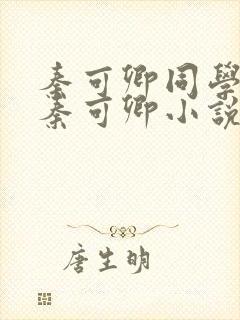 秦可卿同學
秦可卿小說
唐生明